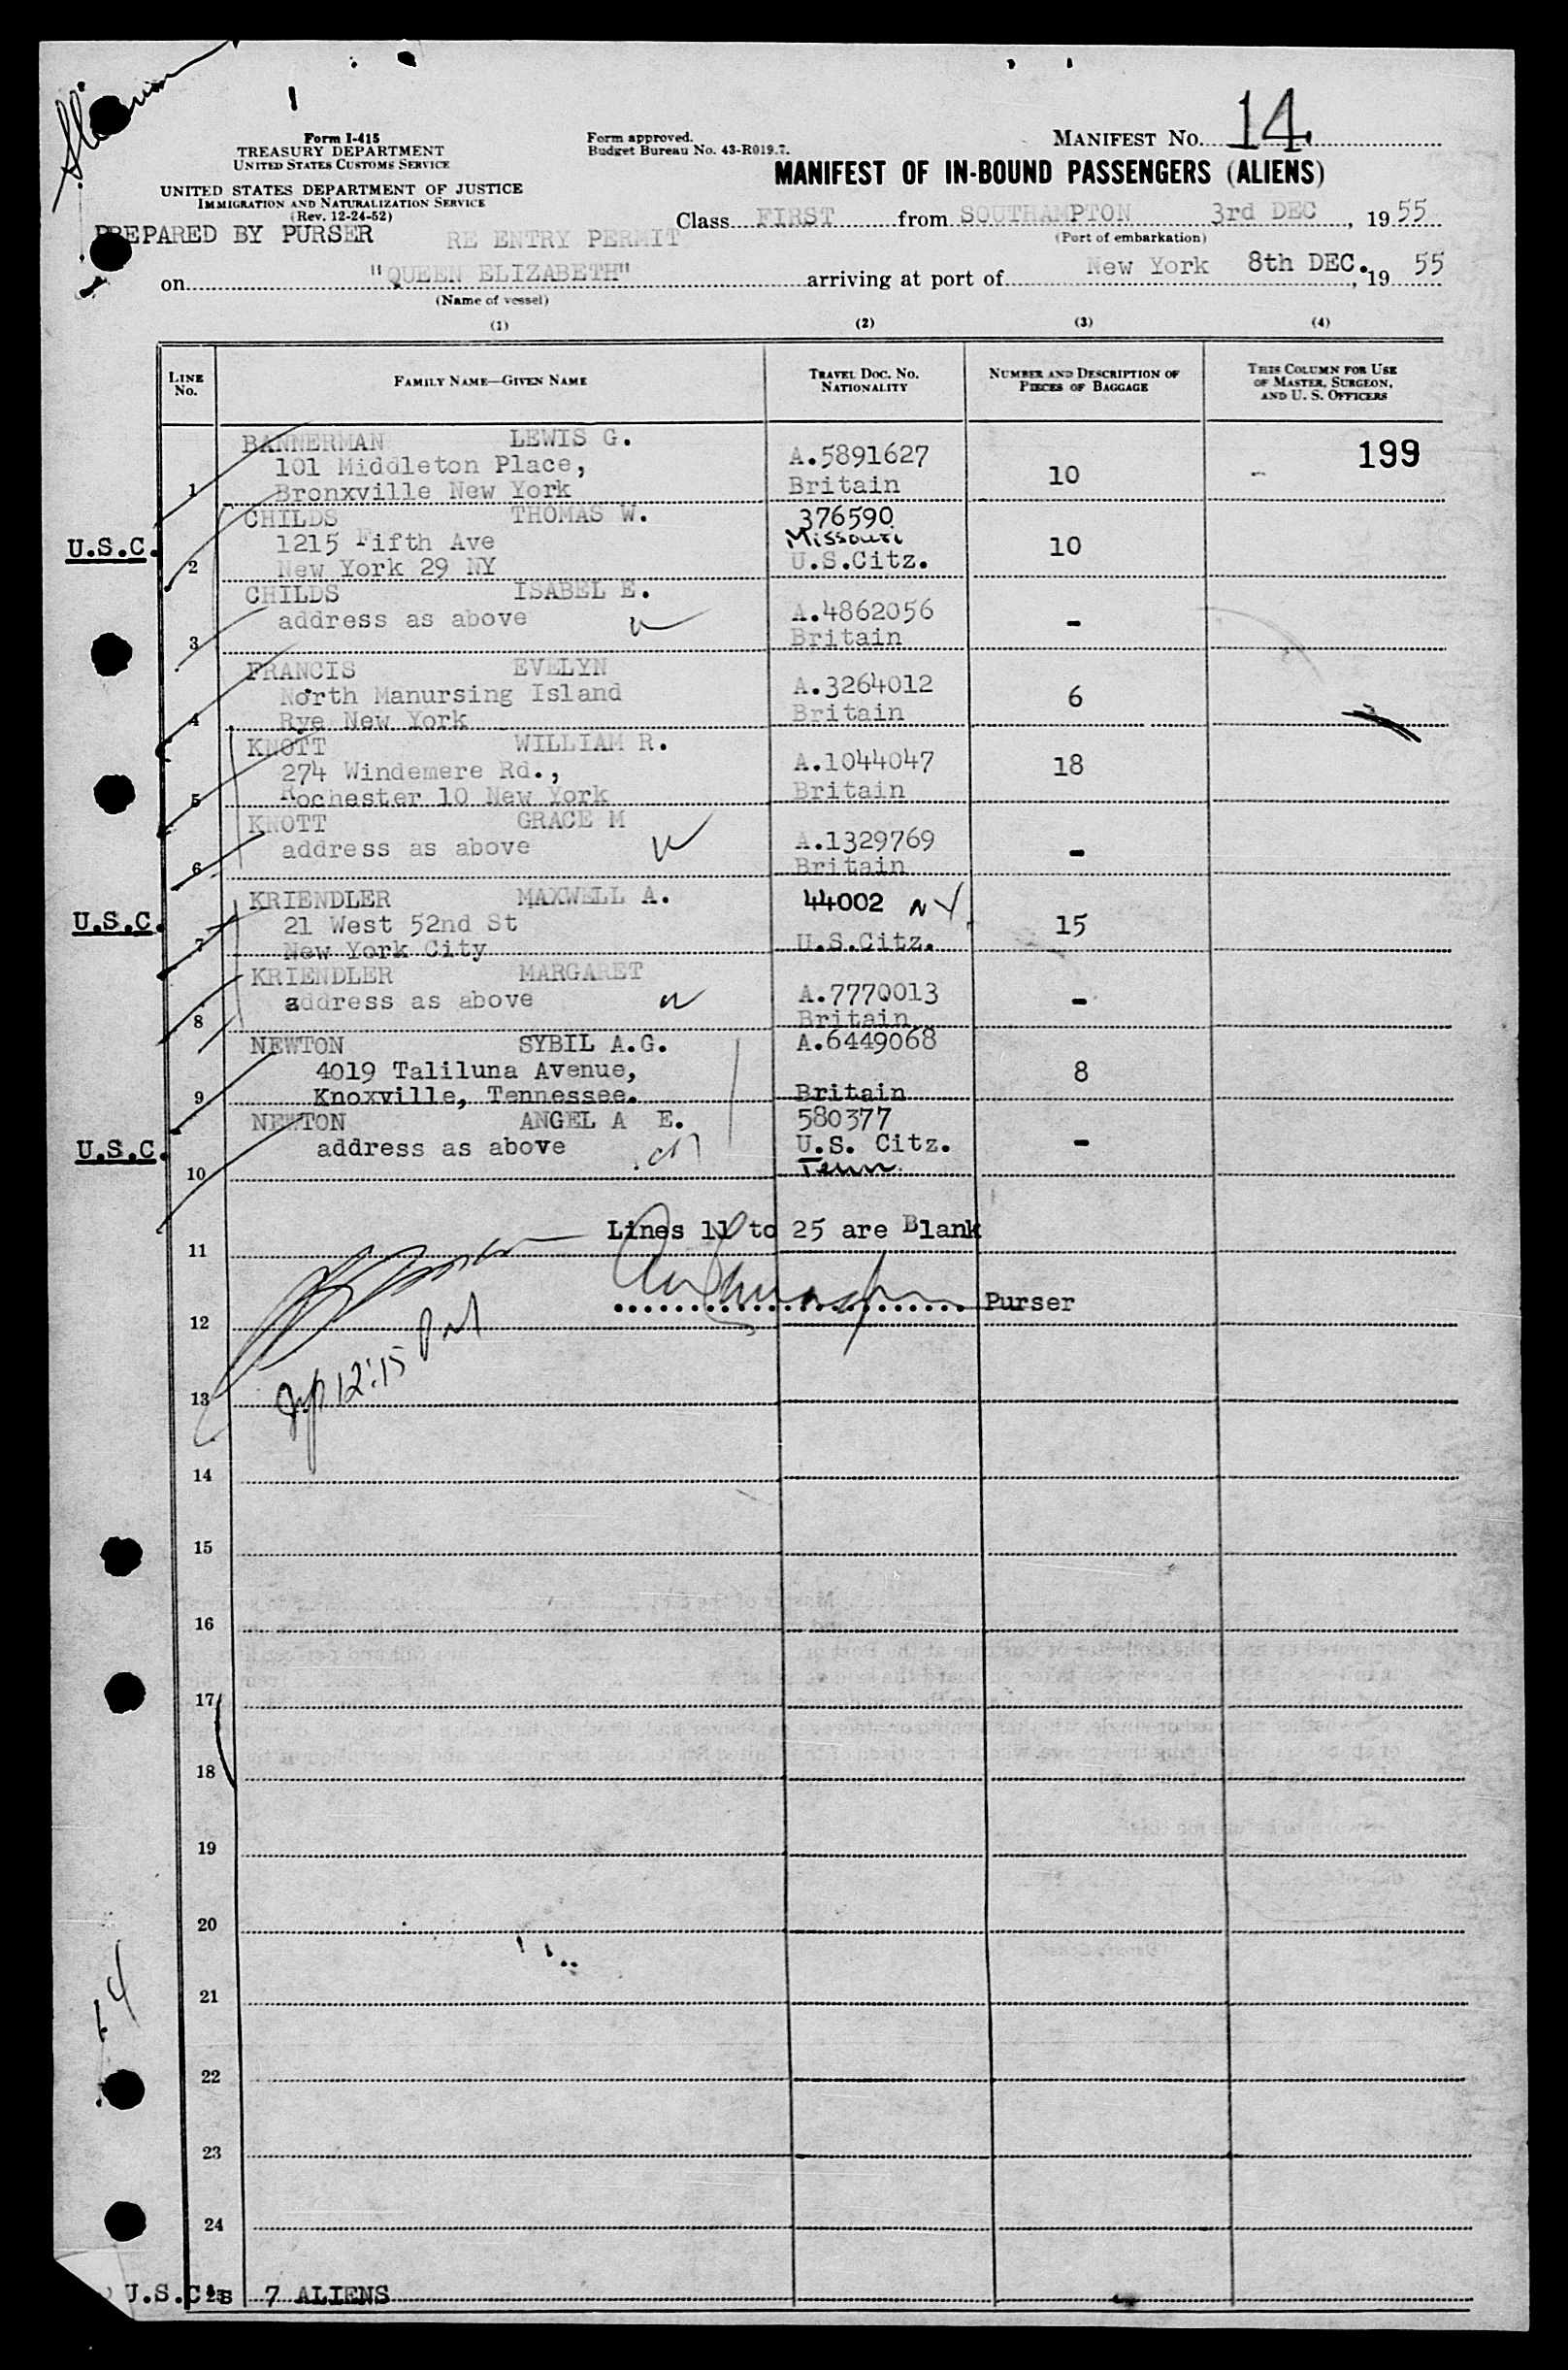 Form I-415
TREASURY DEPARTMENT
UNITED STATES CUSTOMS SERVICE
UNITED STATES DEPARTMENT OF JUSTICE
IMMIGRATION AND NATURALIZATION SERVICE
(Rev. 12-24-52)
PREPARED BY PURSER RE ENTRY PERMIT
Form approved.
Budget Bureau No. 43-R019.7.
MANIFEST No. 14
MANIFEST OF IN-BOUND PASSENGERS (ALIENS)
Class FIRST from SOUTHAMPTON 3rd DEC, 1955
(Port of embarkation)
on "QUEEN ELIZABETH" arriving at port of New York 8th DEC., 19 55
(Name of vessel)
(1) (2) (3) (4)
LINE No. FAMILY NAME—GIVEN NAME TRAVEL DOC. NO. NATIONALITY NUMBER AND DESCRIPTION OF PIECES OF BAGGAGE THIS COLUMN FOR USE OF MASTER, SURGEON, AND U. S. OFFICERS
BANNERMAN LEWIS G. 199
101 Middleton Place, A.5891627 10 -
1 Bronxville New York Britain
CHILDS THOMAS W. 376590
U.S.C. 1215 Fifth Ave Missouri 10
2 New York 29 NY U.S.Citz.
CHILDS ISABEL E.
address as above A.4862056 -
3 Britain
FRANCIS EVELYN
North Manursing Island A.3264012 6
4 Rye New York Britain
KNOTT WILLIAM R.
274 Windemere Rd., A.1044047 18
5 Rochester 10 New York Britain
KNOTT GRACE M
address as above A.1329769 -
6 Britain
KRIENDLER MAXWELL A. 44002 NY
U.S.C. 21 West 52nd St 15
7 New York City U.S.Citz.
KRIENDLER MARGARET
address as above A.7770013 -
8 Britain
NEWTON SYBIL A.G. A.6449068
4019 Taliluna Avenue, 8
9 Knoxville, Tennessee. Britain
NEWTON ANGEL A E. 580377
U.S.C. address as above U.S. Citz. -
10 Tenn.
Lines 11 to 25 are Blank
11
Purser
12
12:15 PM
13
14
15
16
17
18
19
20
21
22
23
24
U.S.C's 7 ALIENS